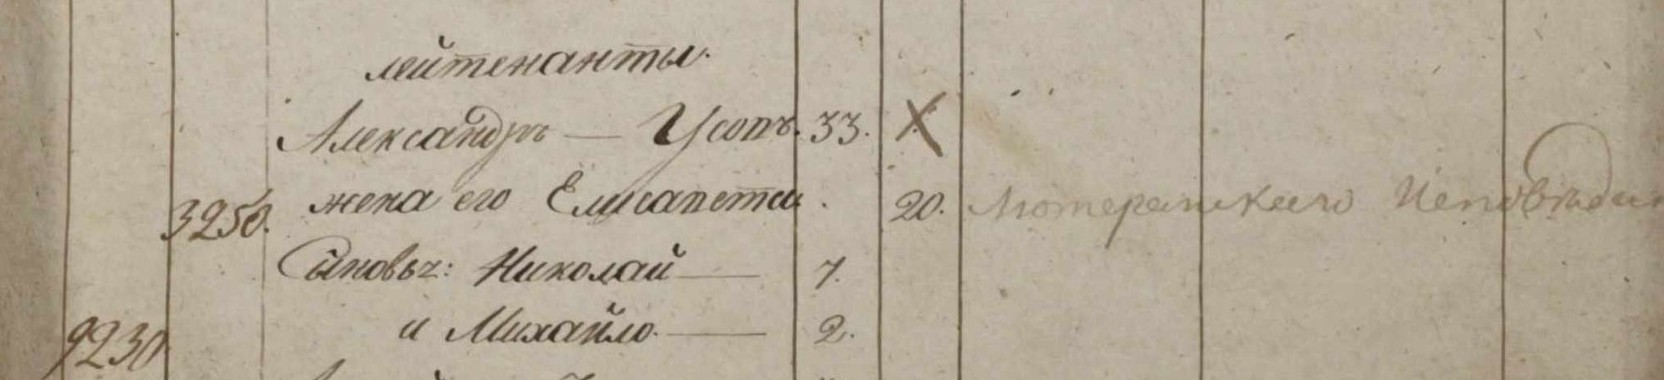 лейтенанты.
Александръ — Усовъ. 33. X
3250. жена его Елисаветта. 20. Лютеранскаго Исповѣдан
Сыновья: Николай — 7.
и Михайло — 2.
9230